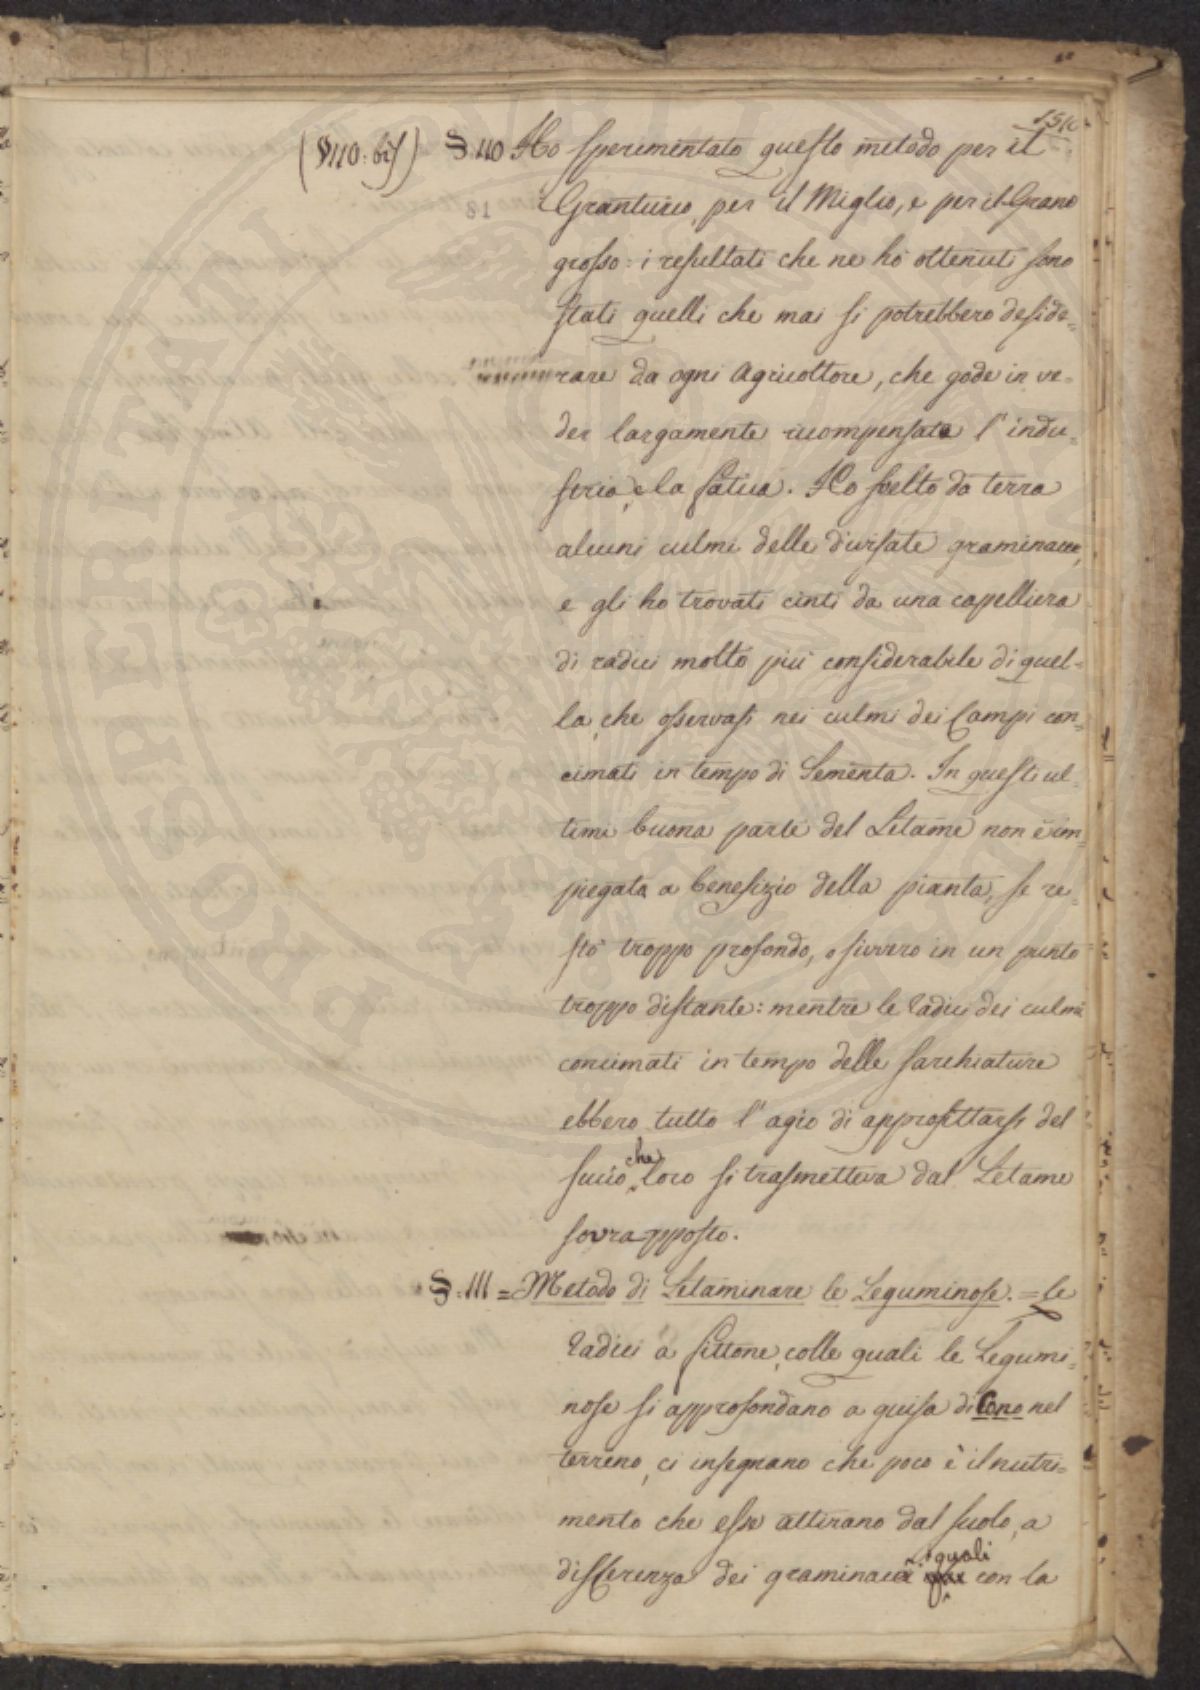 (§110. bis) §.110 Ho sperimentato questo metodo per il
Granturco, per il Miglio, e per il Grano
grosso: i resultati che ne ho ottenuti sono
stati quelli che mai si potrebbero deside-
rare da ogni Agricoltore, che gode in ve-
der largamente ricompensata l'indu-
stria, e la fatica. Ho svelto da terra
alcuni culmi delle divisate graminacee,
e gli ho trovati cinti da una capelliera
di radici molto più considerabile di quel-
la, che osservasi nei culmi dei Campi con-
cimati in tempo di Sementa. In questi ul-
timi buona parte del Letame non è im-
piegata a benefizio della pianta, se re-
stò troppo profondo, o sivvero in un punto
troppo distante: mentre le radici dei culmi
concimati in tempo delle sarchiature
ebbero tutto l'agio di approfittarsi del
succo che loro si trasmetteva dal Letame
sovrapposto.
§.111 = Metodo di Letaminare le Leguminose. = le
radici a fittone, colle quali le Legumi-
nose si approfondano a guisa di Cono nel
terreno, ci insegnano che poco è il nutri-
mento che esse attirano dal suolo, a
differenza dei graminacei i quali con la
PROSPERITATI PUBLICAE